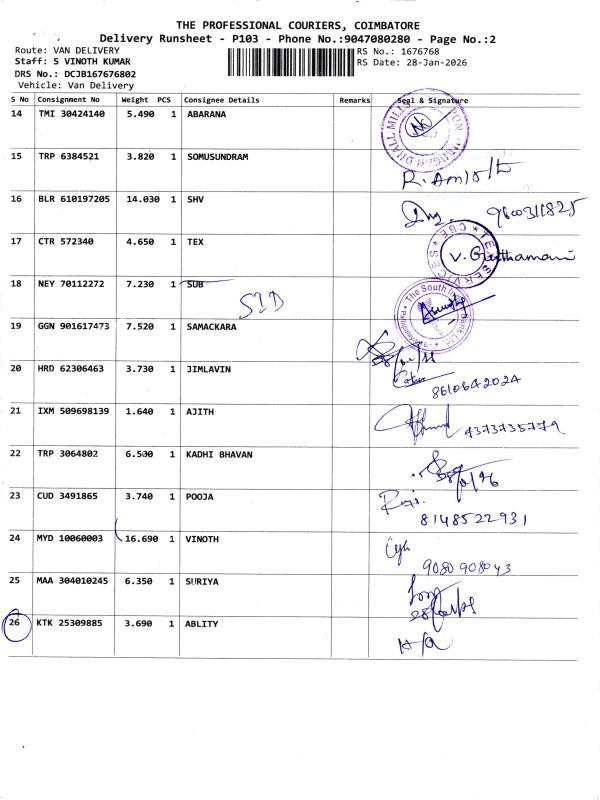 THE PROFESSIONAL COURIERS, COIMBATORE
Delivery Runsheet - P103 - Phone No.:9047080280 - Page No.:2
Route: VAN DELIVERY
Staff: S VINOTH KUMAR
DRS No.: DCJB167676802
Vehicle: Van Delivery
RS No.: 1676768
RS Date: 28-Jan-2026
S No Consignment No Weight PCS Consignee Details Remarks Seal & Signature
14 TMI 30424140 5.490 1 ABARANA
15 TRP 6384521 3.820 1 SOMUSUNDRAM
16 BLR 610197205 14.030 1 SHV
9600311825
17 CTR 572340 4.650 1 TEX
V. Githamani
18 NEY 70112272 7.230 1 SUB
SID
The South Indian Bank Ltd.
19 GGN 901617473 7.520 1 SAMACKARA
20 HRD 62306463 3.730 1 JIMLAVIN
8610642024
21 IXM 509698139 1.640 1 AJITH
22 TRP 3064802 6.500 1 KADHI BHAVAN
23 CUD 3491865 3.740 1 POOJA
8148522931
24 MYD 10060003 16.690 1 VINOTH
9080908043
25 MAA 304010245 6.350 1 SURIYA
26 KTK 25309885 3.690 1 ABLITY